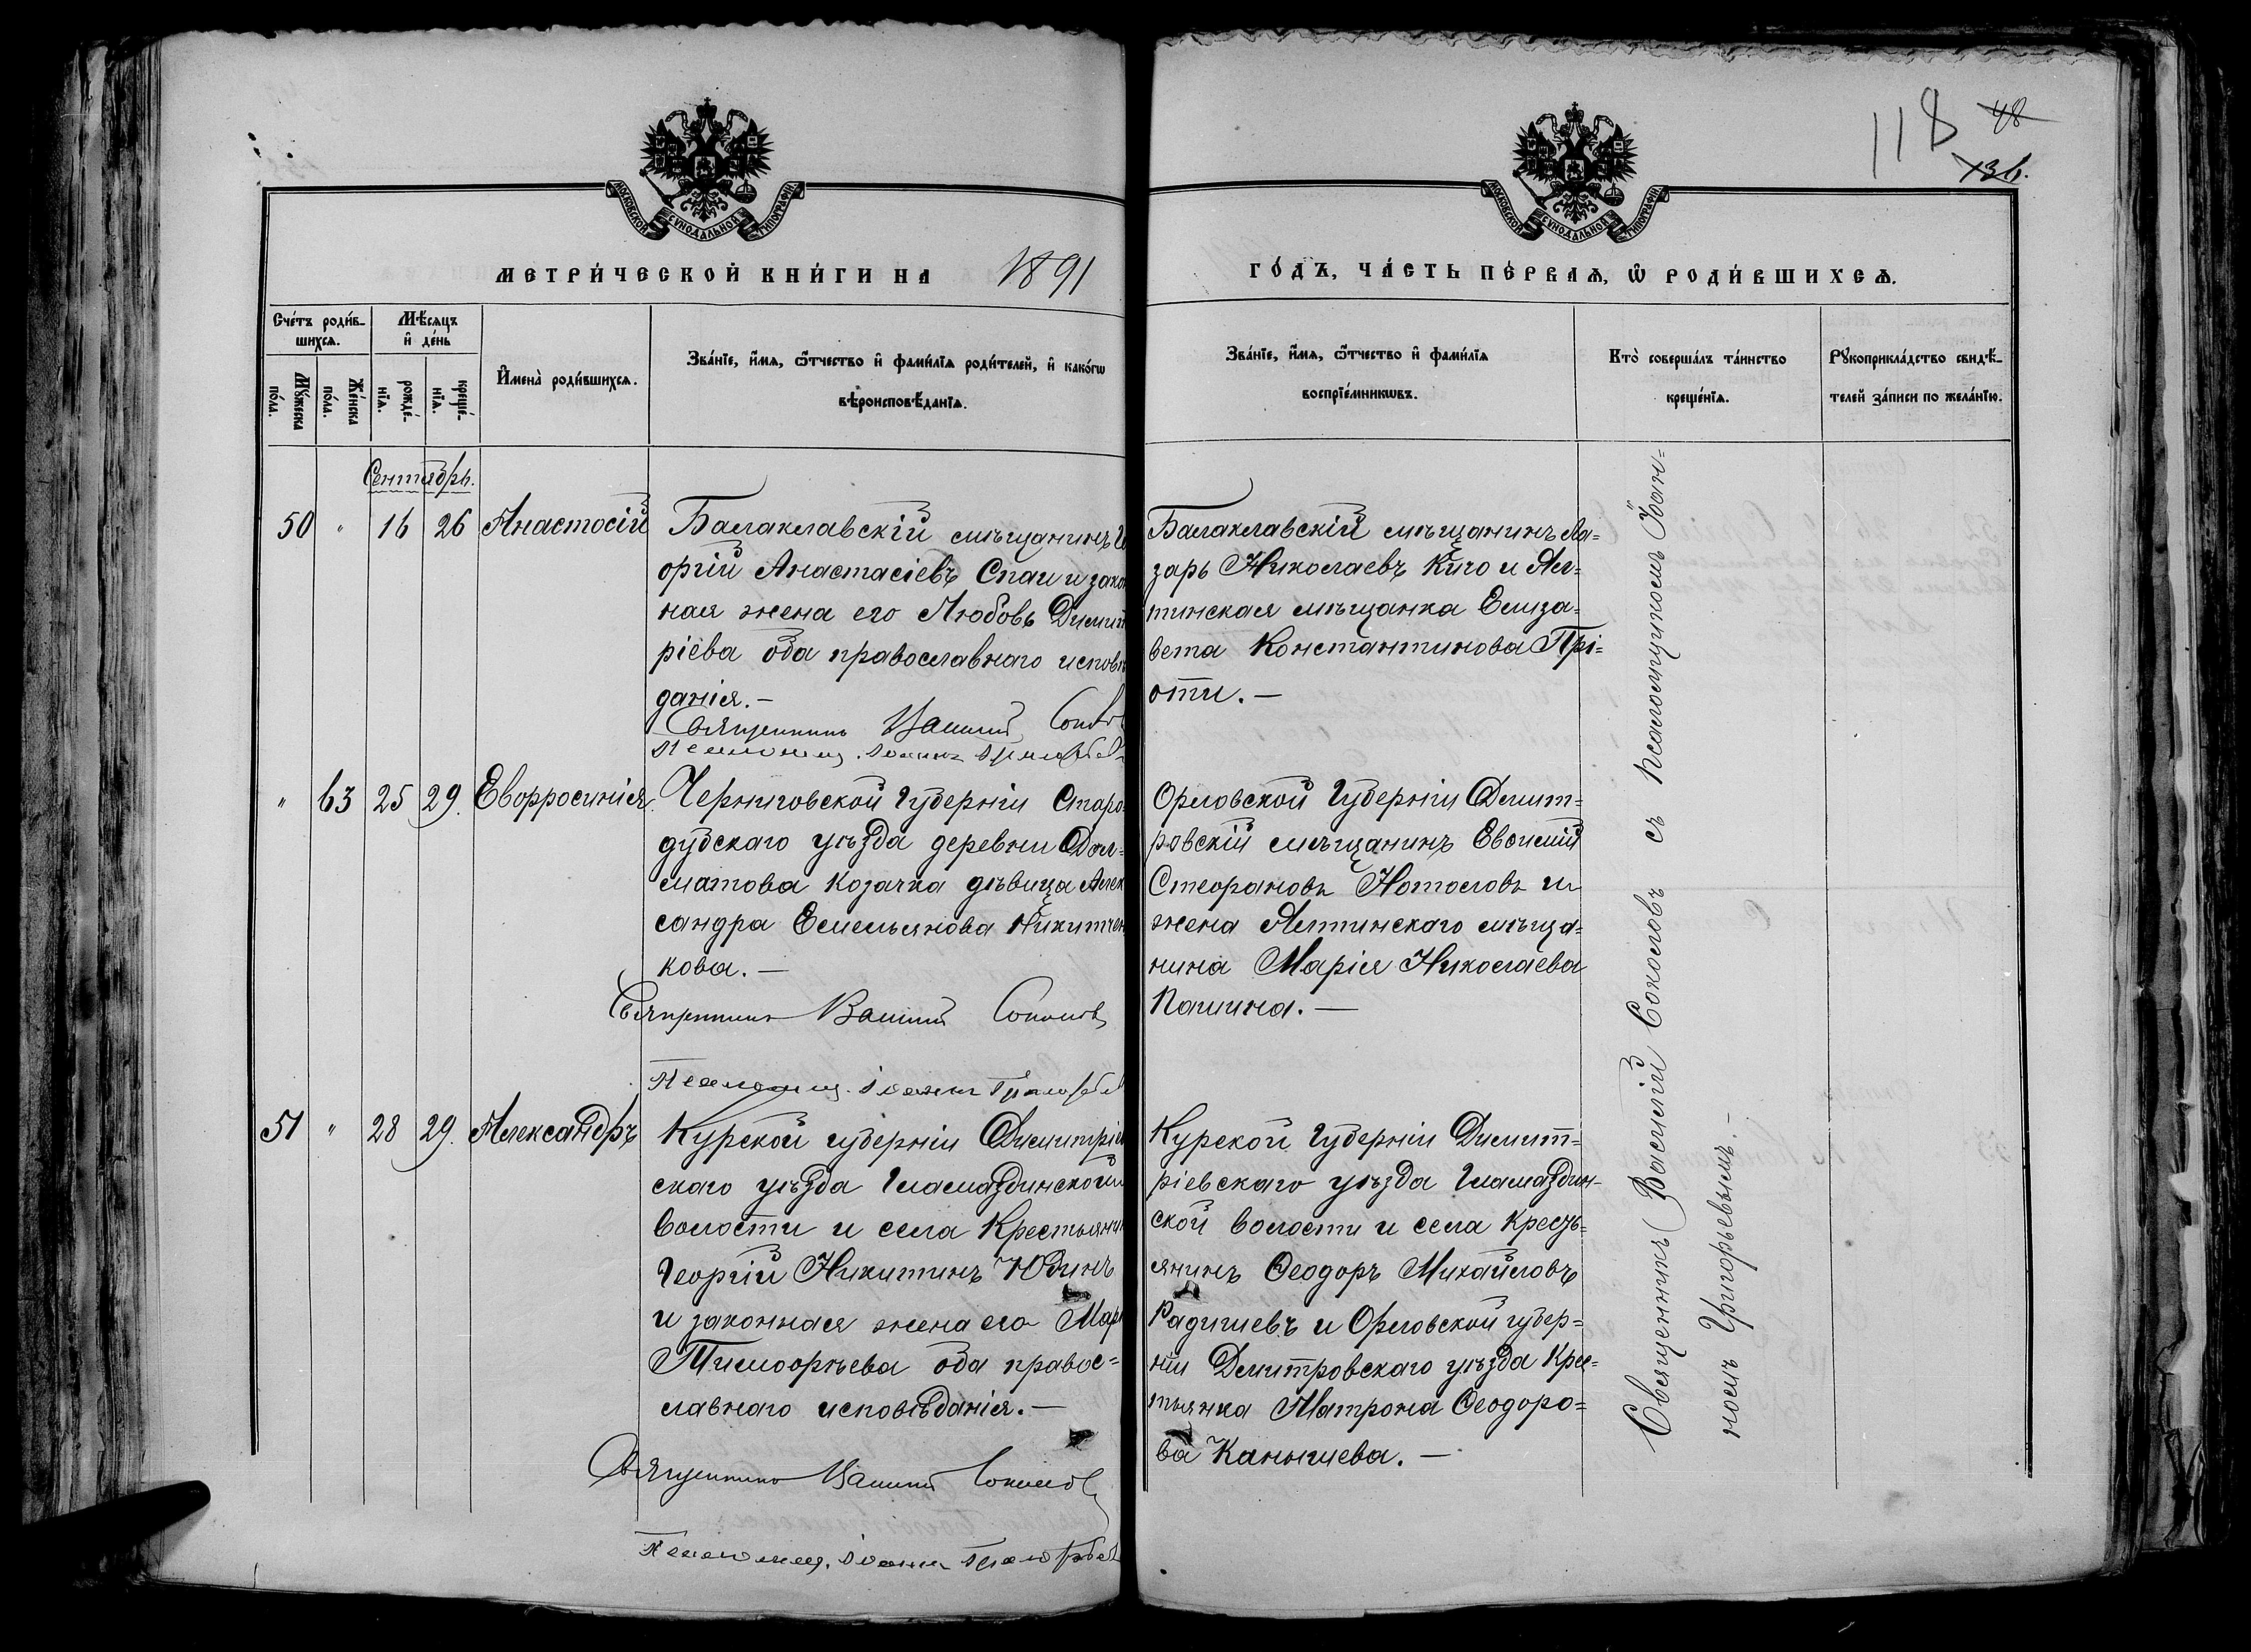 118 48
136.
МОСКОВСКОЙ СѴНОДАЛЬНОЙ ТИПОГРАФІИ
МОСКОВСКОЙ СѴНОДАЛЬНОЙ ТИПОГРАФІИ
МЕТРИ́ЧЕСКОЙ КНИ́ГИ НА 1891
ГО́ДЪ, ЧА́СТЬ ПЕ́РВАѦ, Ѿ РОДИ́ВШИХСѦ.
Сче́тъ роди́в-
шихсѧ.
Мꙋ́жеска по́ла.
Же́нска по́ла.
Мѣ́сѧцъ и҆ де́нь
рожде́-
нїѧ.
креще́-
нїѧ.
И҆мена̀ роди́вшихсѧ.
Зва́нїе, и҆́мѧ, ѻ҆́тчество и҆ фами́лїѧ роди́телей, и҆ како́гѡ
вѣроисповѣ́данїѧ.
Зва́нїе, и҆́мѧ, ѻ҆́тчество и҆ фами́лїѧ
воспрїе́мникѡвъ.
Кто̀ соверша́лъ та́инство
креще́нїѧ.
Рꙋкоприкла́дство свидѣ́-
телей за́писи по жела́нїю.
Сентябрь.
50 " 16 26 Анастосій
Балаклавскій мѣщанинъ Ге
оргій Анастасіевъ Спаи и закон
ная жена его Любовь Димит
ріева оба православнаго исповѣ
данія.—
Священникъ Василій Соколов
Псаломщ. Іоаннъ
Балаклавскій мѣщанинъ Ла=
зарь Николаевъ Кичо и Ял=
тинская мѣщанка Елиза=
вета Константинова Прі=
оти.—
" 63 25 29. Евфросинія
Черниговской Губерніи Старо
дубскаго уѣзда деревни Дал=
матова козачка дѣвица Алек
сандра Емельянова Никитчен
кова.—
Священникъ Василій Соколовъ
Псаломщ. Іоаннъ
Орловской Губерніи Дмит=
ровскій мѣщанинъ Евфимій
Стефановъ Нотоловъ и
жена Ялтинскаго мѣща=
нина Марія Николаева
Пашина.—
51 " 28 29. Александръ
Курской губерніи Димитріев
скаго уѣзда Гламаздинской
волости и села Крестьянин
Георгій Никитинъ Юдинъ
и законная жена его Мар
Тимофѣева оба правос=
лавнаго исповѣданія.—
Священникъ Василій Соколовъ
Псаломщ. Іоаннъ
Курской Губерніи Димит=
ріевскаго уѣзда Гламаздин-
ской волости и села кресть=
янинъ Ѳеодоръ Михайловъ
Радишевъ и Орловской губер=
ніи Дмитровскаго уѣзда Крес=
тьянка Матрона Ѳеодоро=
ва Канышева.—
Священникъ Василій Соколовъ съ Псаломщикомъ Іоан=
номъ Григорьевымъ.—